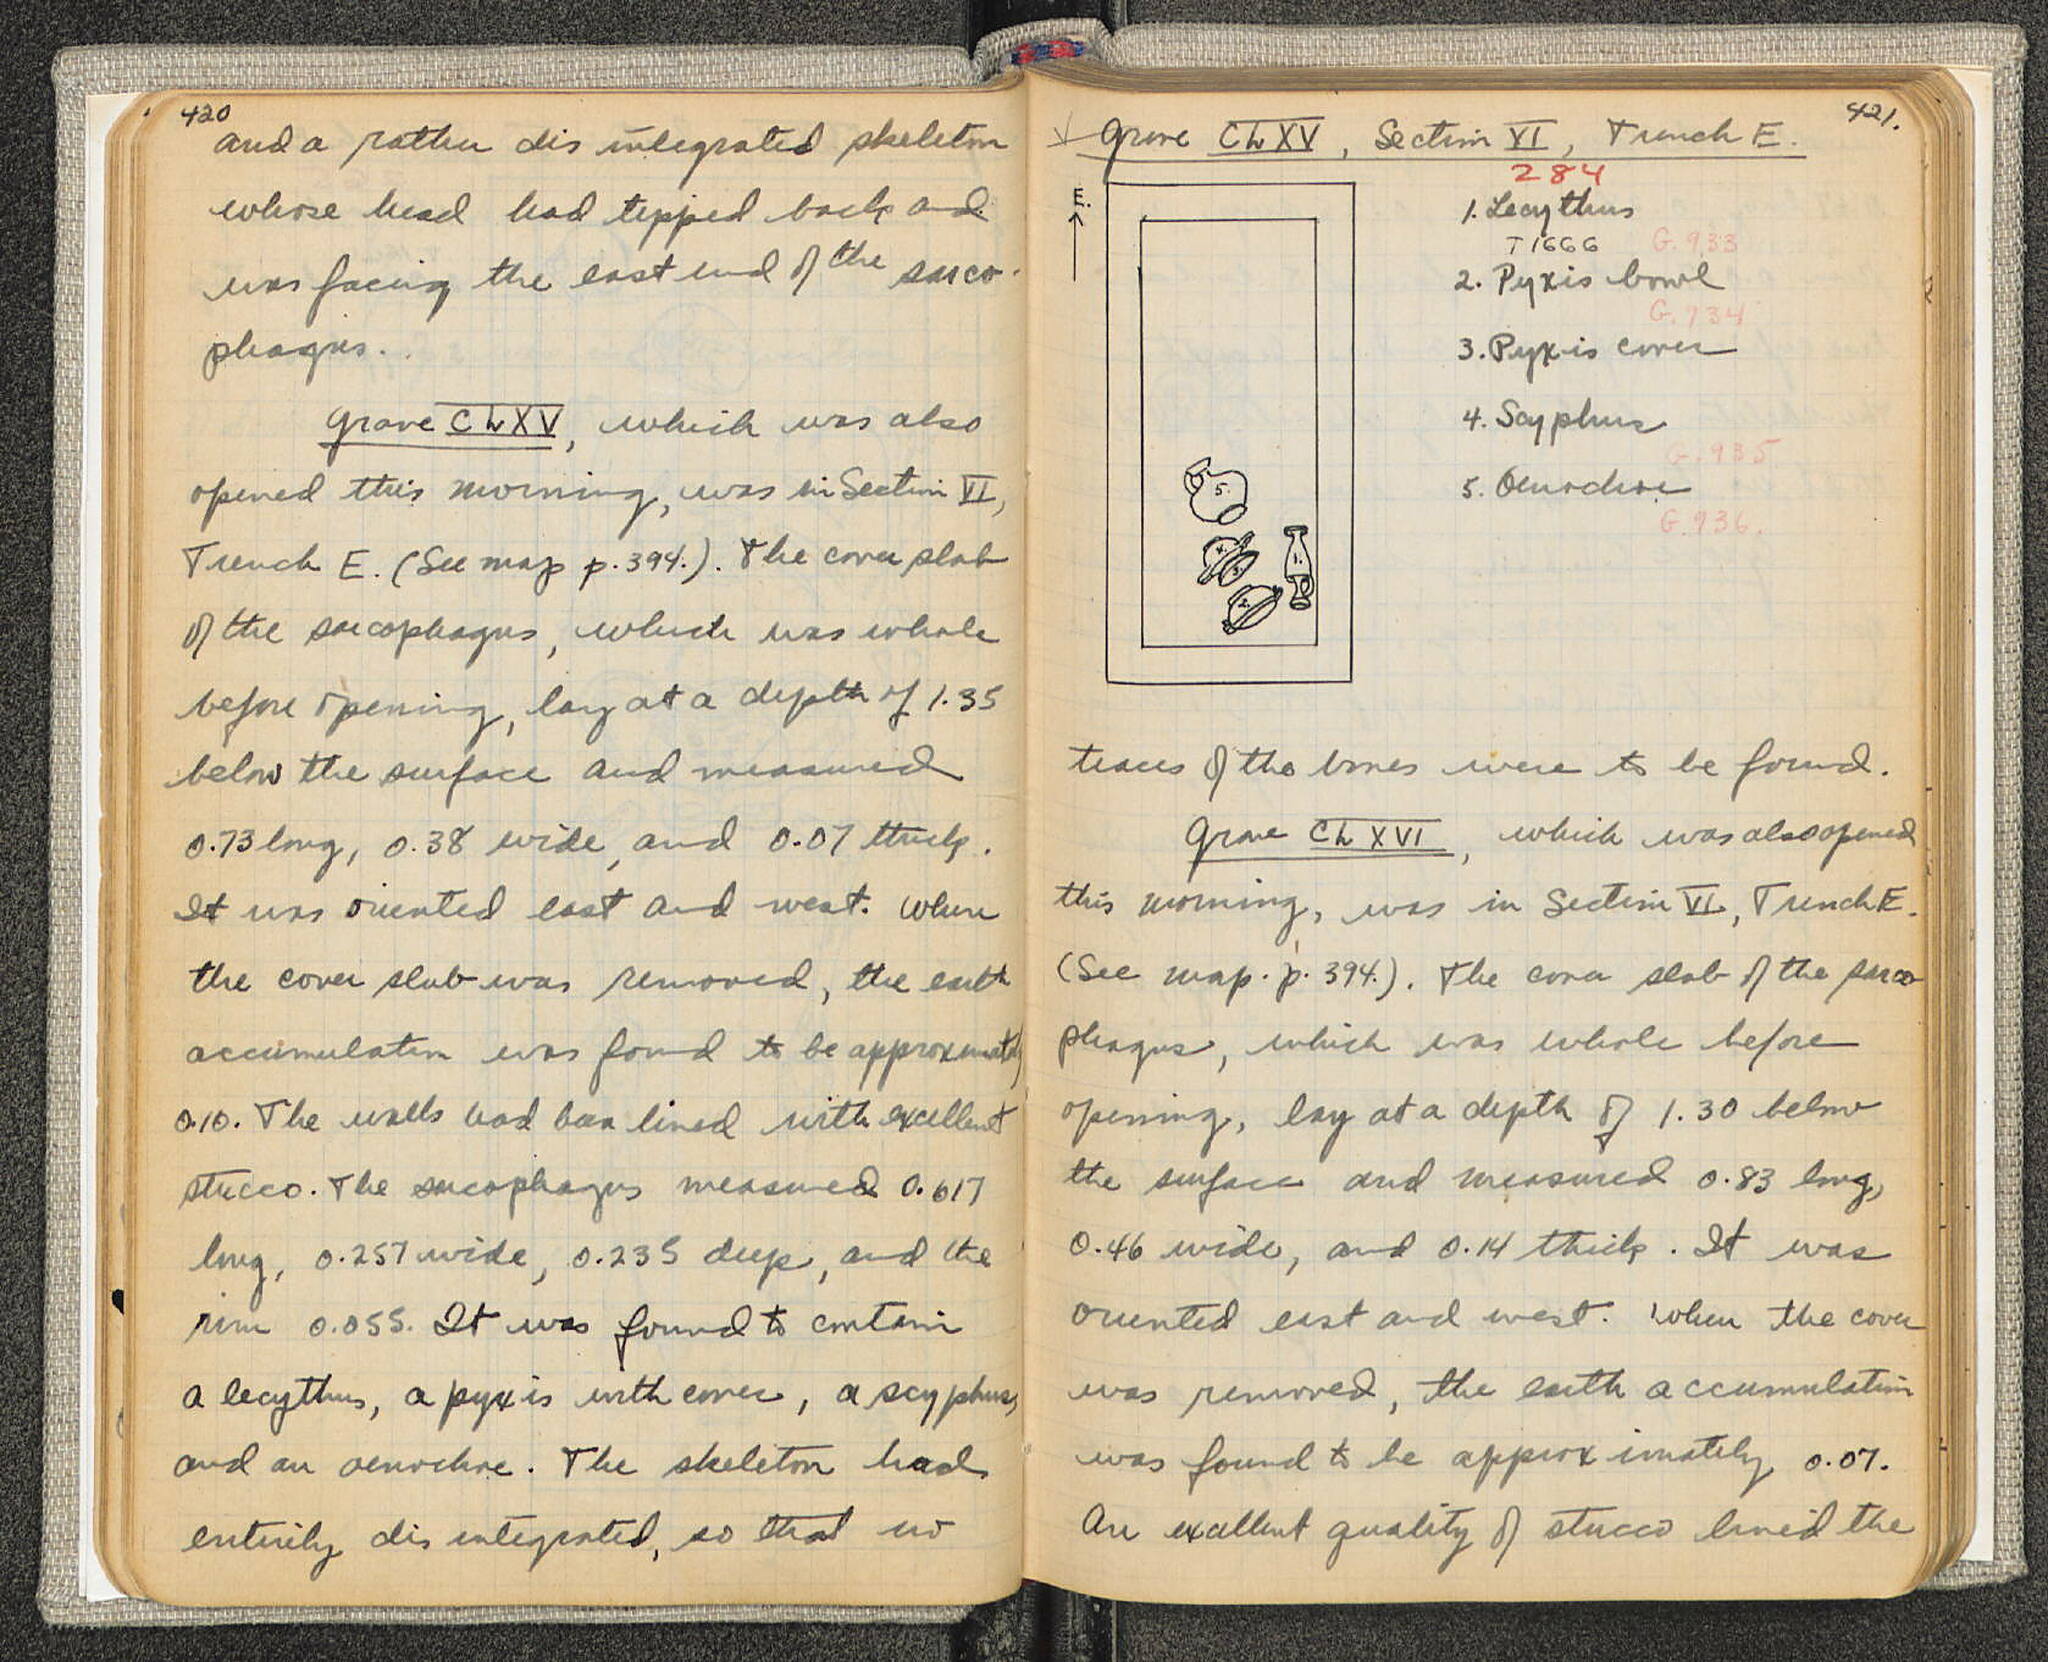 420
and a rather disintegrated skeleton
whose head had tipped back and
was facing the east end of the sarco-
phagus.
Grave Ch XV, which was also
opened this morning, was in Section VI,
Trench E. (See map p. 394.). The cover slab
of the sarcophagus, which was whole
before opening, lay at a depth of 1.35
below the surface and measured
0.73 long, 0.38 wide, and 0.07 thick.
It was oriented east and west. When
the cover slab was removed, the earth
accumulation was found to be approximately
0.10. The walls had been lined with excellent
stucco. The sarcophagus measured 0.617
long, 0.257 wide, 0.235 deep, and the
rim 0.055. It was found to contain
a lecythus, a pyxis with cover, a scyphus,
and an oenochoe. The skeleton had
entirely disintegrated, so that no
421.
Grave Ch XV, Section VI, Trench E.
284
E.
1. Lecythus
T 1666 G.933
2. Pyxis bowl
G.934
3. Pyxis cover
4. Scyphus
G.935
5. Oenochoe
G.936.
5.
4.
3.
1.
2.
traces of the bones were to be found.
Grave Ch XVI, which was also opened
this morning, was in Section VI, Trench E.
(See map. p. 394.). The cover slab of the sarco
phagus, which was whole before
opening, lay at a depth of 1.30 below
the surface and measured 0.83 long,
0.46 wide, and 0.14 thick. It was
oriented east and west. When the cover
was removed, the earth accumulation
was found to be approximately 0.07.
An excellent quality of stucco lined the